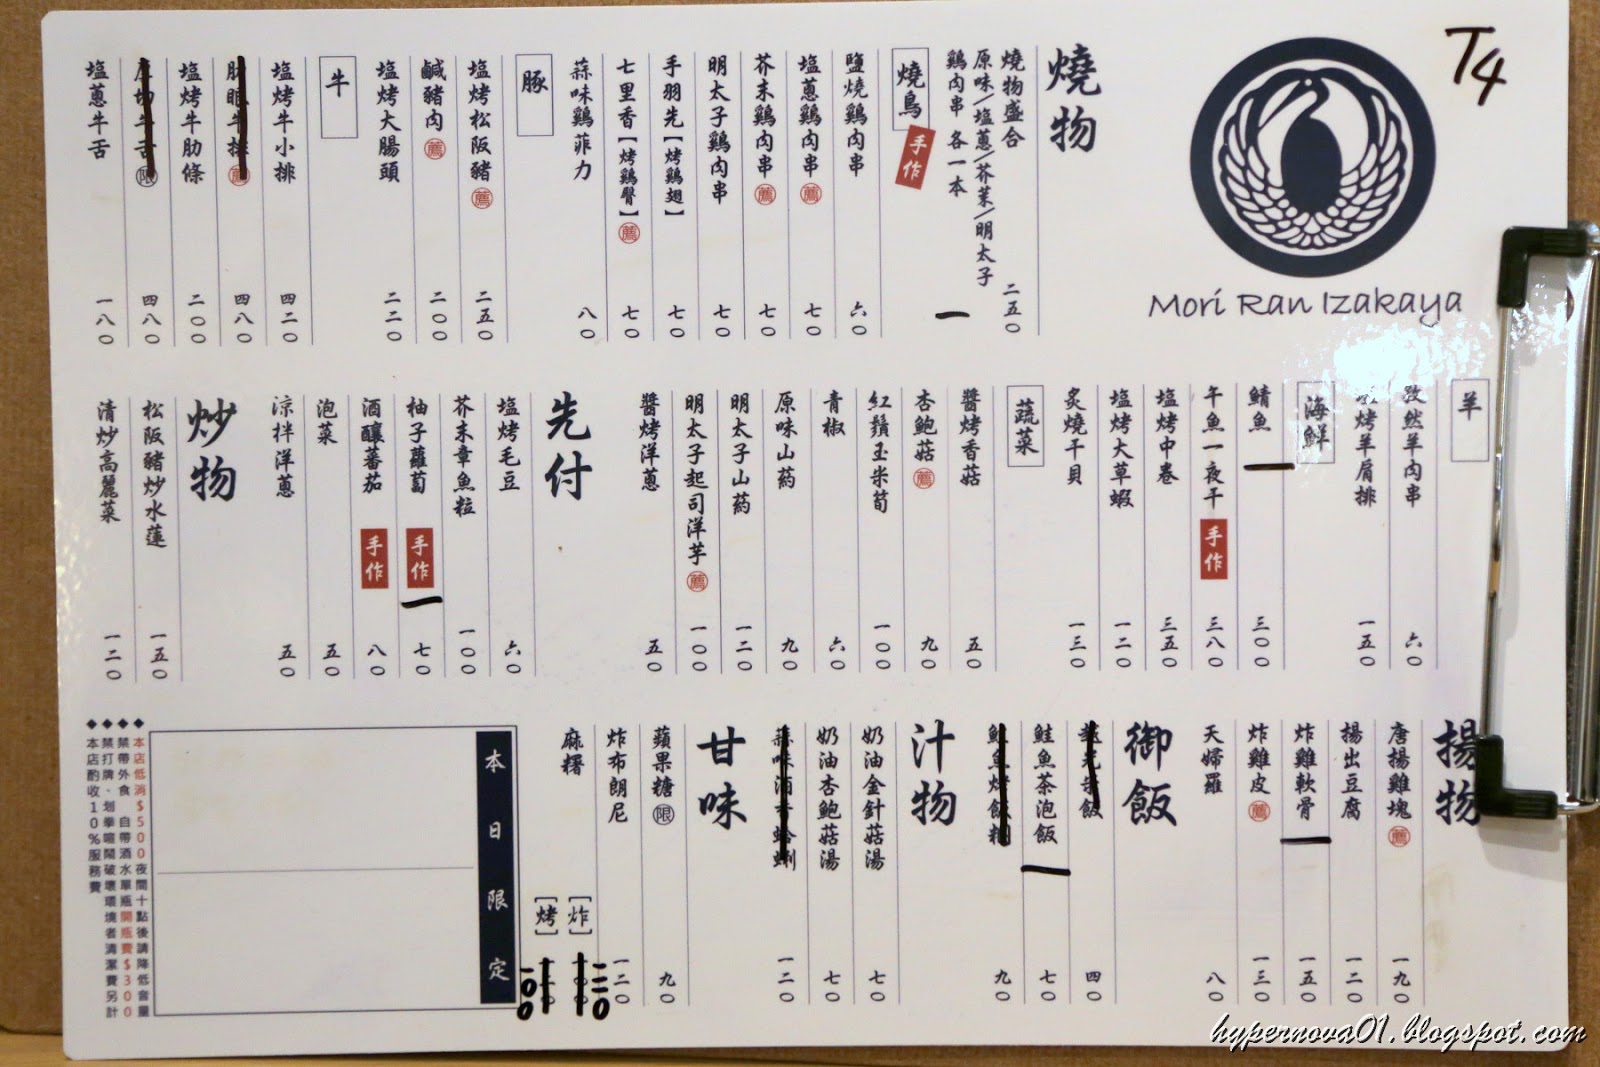 T4
Mori Ran Izakaya
燒物
燒物盛合 二五〇
原味/塩蔥/芥茉/明太子
鷄肉串 各一本
燒鳥 手作
鹽燒鷄肉串 六〇
塩蔥鷄肉串 薦 七〇
芥末鷄肉串 薦 七〇
明太子鷄肉串 七〇
手羽先【烤鷄翅】 七〇
七里香【烤鷄臀】 薦 七〇
蒜味鷄菲力 八〇
豚
塩烤松阪豬 薦 二五〇
鹹豬肉 薦 二〇〇
塩烤大腸頭 二二〇
牛
塩烤牛小排 四二〇
牛排 薦 四八〇
塩烤牛肋條 二〇〇
厚切牛舌 限 四八〇
塩蔥牛舌 一八〇
羊
孜然羊肉串 六〇
烤羊肩排 一五〇
海鮮
鯖魚 三〇〇
午魚一夜干 手作 三八〇
塩烤中卷 三五〇
塩烤大草蝦 一二〇
炙燒干貝 一三〇
蔬菜
醬烤香菇 五〇
杏鮑菇 薦 九〇
紅鬚玉米筍 一〇〇
青椒 六〇
原味山葯 九〇
明太子山葯 一二〇
明太子起司洋芋 薦 一〇〇
醬烤洋蔥 五〇
先付
塩烤毛豆 六〇
芥末章魚粒 一〇〇
柚子蘿蔔 手作 七〇
酒釀蕃茄 手作 八〇
泡菜 五〇
涼拌洋蔥 五〇
炒物
松阪豬炒水蓮 一五〇
清炒高麗菜 一二〇
揚物
唐揚雞塊 薦 一九〇
揚出豆腐 一二〇
炸雞軟骨 一五〇
炸雞皮 薦 一三〇
天婦羅 八〇
御飯
飯 四〇
鮭魚茶泡飯 七〇
鮭魚烤飯糰 九〇
汁物
奶油金針菇湯 七〇
奶油杏鮑菇湯 七〇
蒜味酒香蛤蜊 一二〇
甘味
蘋果糖 限 九〇
炸布朗尼 一二〇
麻糬
[炸] 一二〇
[烤] 一〇〇
本日限定
◆本店低消$500夜間十點後請降低音量
◆禁帶外食、自帶酒水單瓶開瓶費$300
◆禁打牌、划拳喧鬧破壞環境者清潔費另計
◆本店酌收10%服務費
hypernova01.blogspot.com